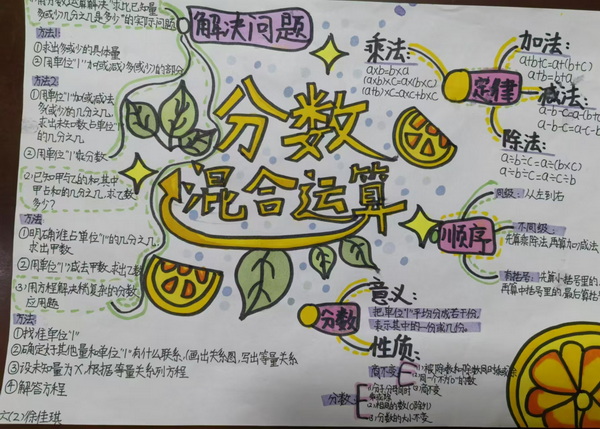 解决问题
方法1:
①求出多或少的具体量
②用单位"1"加(或减)多(或少)的部分
方法2
①用单位"1"加或减法
多或少的几分之几,
求出未知数占单位"1"
的几分之几
②用单位"1"乘分数
2.已知甲与乙的和,其中
甲占和的几分之几,求乙数
多少?
方法:
①明确谁占单位"1"的几分之几,
求出甲数
②用单位"1"减去甲数,求出乙数
3.用方程解决稍复杂的分数
应用题
方法:
①找准单位"1"
②确定好其他量和单位"1"有什么联系,(画出关系图,写出等量关系
③设未知量为X,根据等量关系列方程
④解答方程
六(2)徐佳琪
分数
混合运算
定律
乘法:
a×b=b×a
(a×b)×c=a×(b×c)
(a+b)×c=a×c+b×c
加法:
a+b+c=a+(b+c)
a+b=b+a
减法:
a-b-c=a-(b+c)
a-b-c=a-c-b
除法:
a÷b÷c=a÷(b×c)
a÷b÷c=a÷c÷b
顺序
同级:从左到右
不同级:
先算乘除法,再算加减法
有括号:先算小括号里的
再算中括号里的,最后算括号
分数
意义:
把单位"1"平均分成若干份,
表示其中的一份或几份。
性质:
商不变
分数:
(2)相同的数(0除外)
(3)分数的大小不变